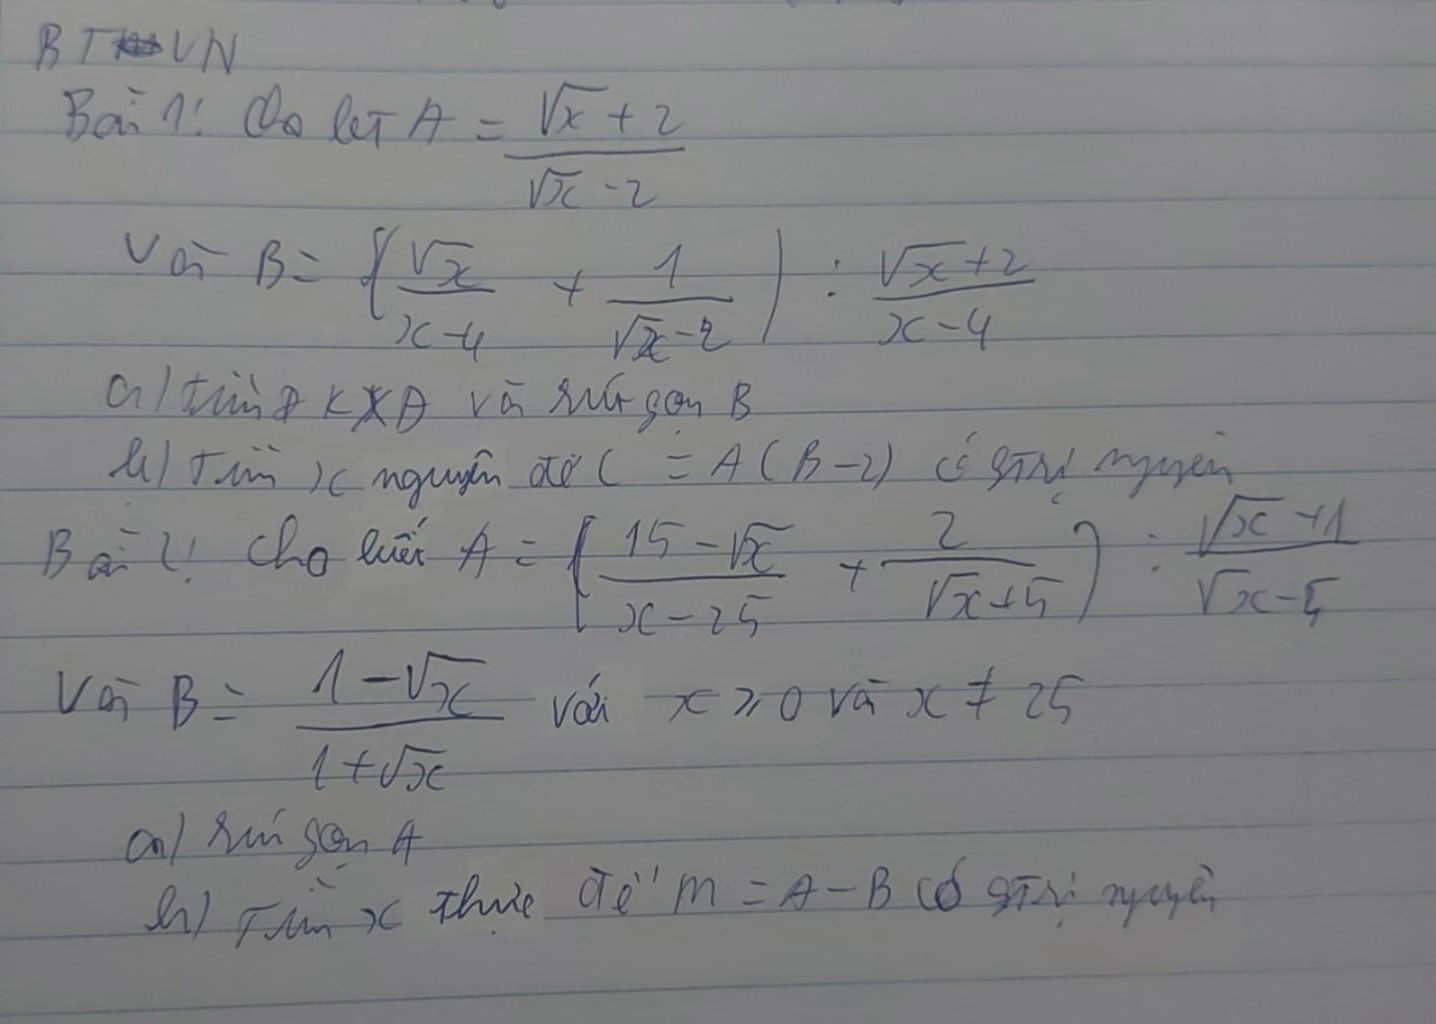 BTVN
Bài 1: Cho bt A = (√x + 2)/(√x - 2)
Và B = (√x/(x-4) + 1/(√x-2)) : (√x+2)/(x-4)
a) tìm ĐKXĐ và rút gọn B
b) Tìm x nguyên để C = A(B-2) có gtrị nguyên
Bài 2: Cho biết A = ((15-√x)/(x-25) + 2/(√x+5)) : (√x+1)/(√x-5)
Và B = (1-√x)/(1+√x) với x ≥ 0 và x ≠ 25
a) rút gọn A
b) Tìm x thực để M = A - B có gtrị nguyên